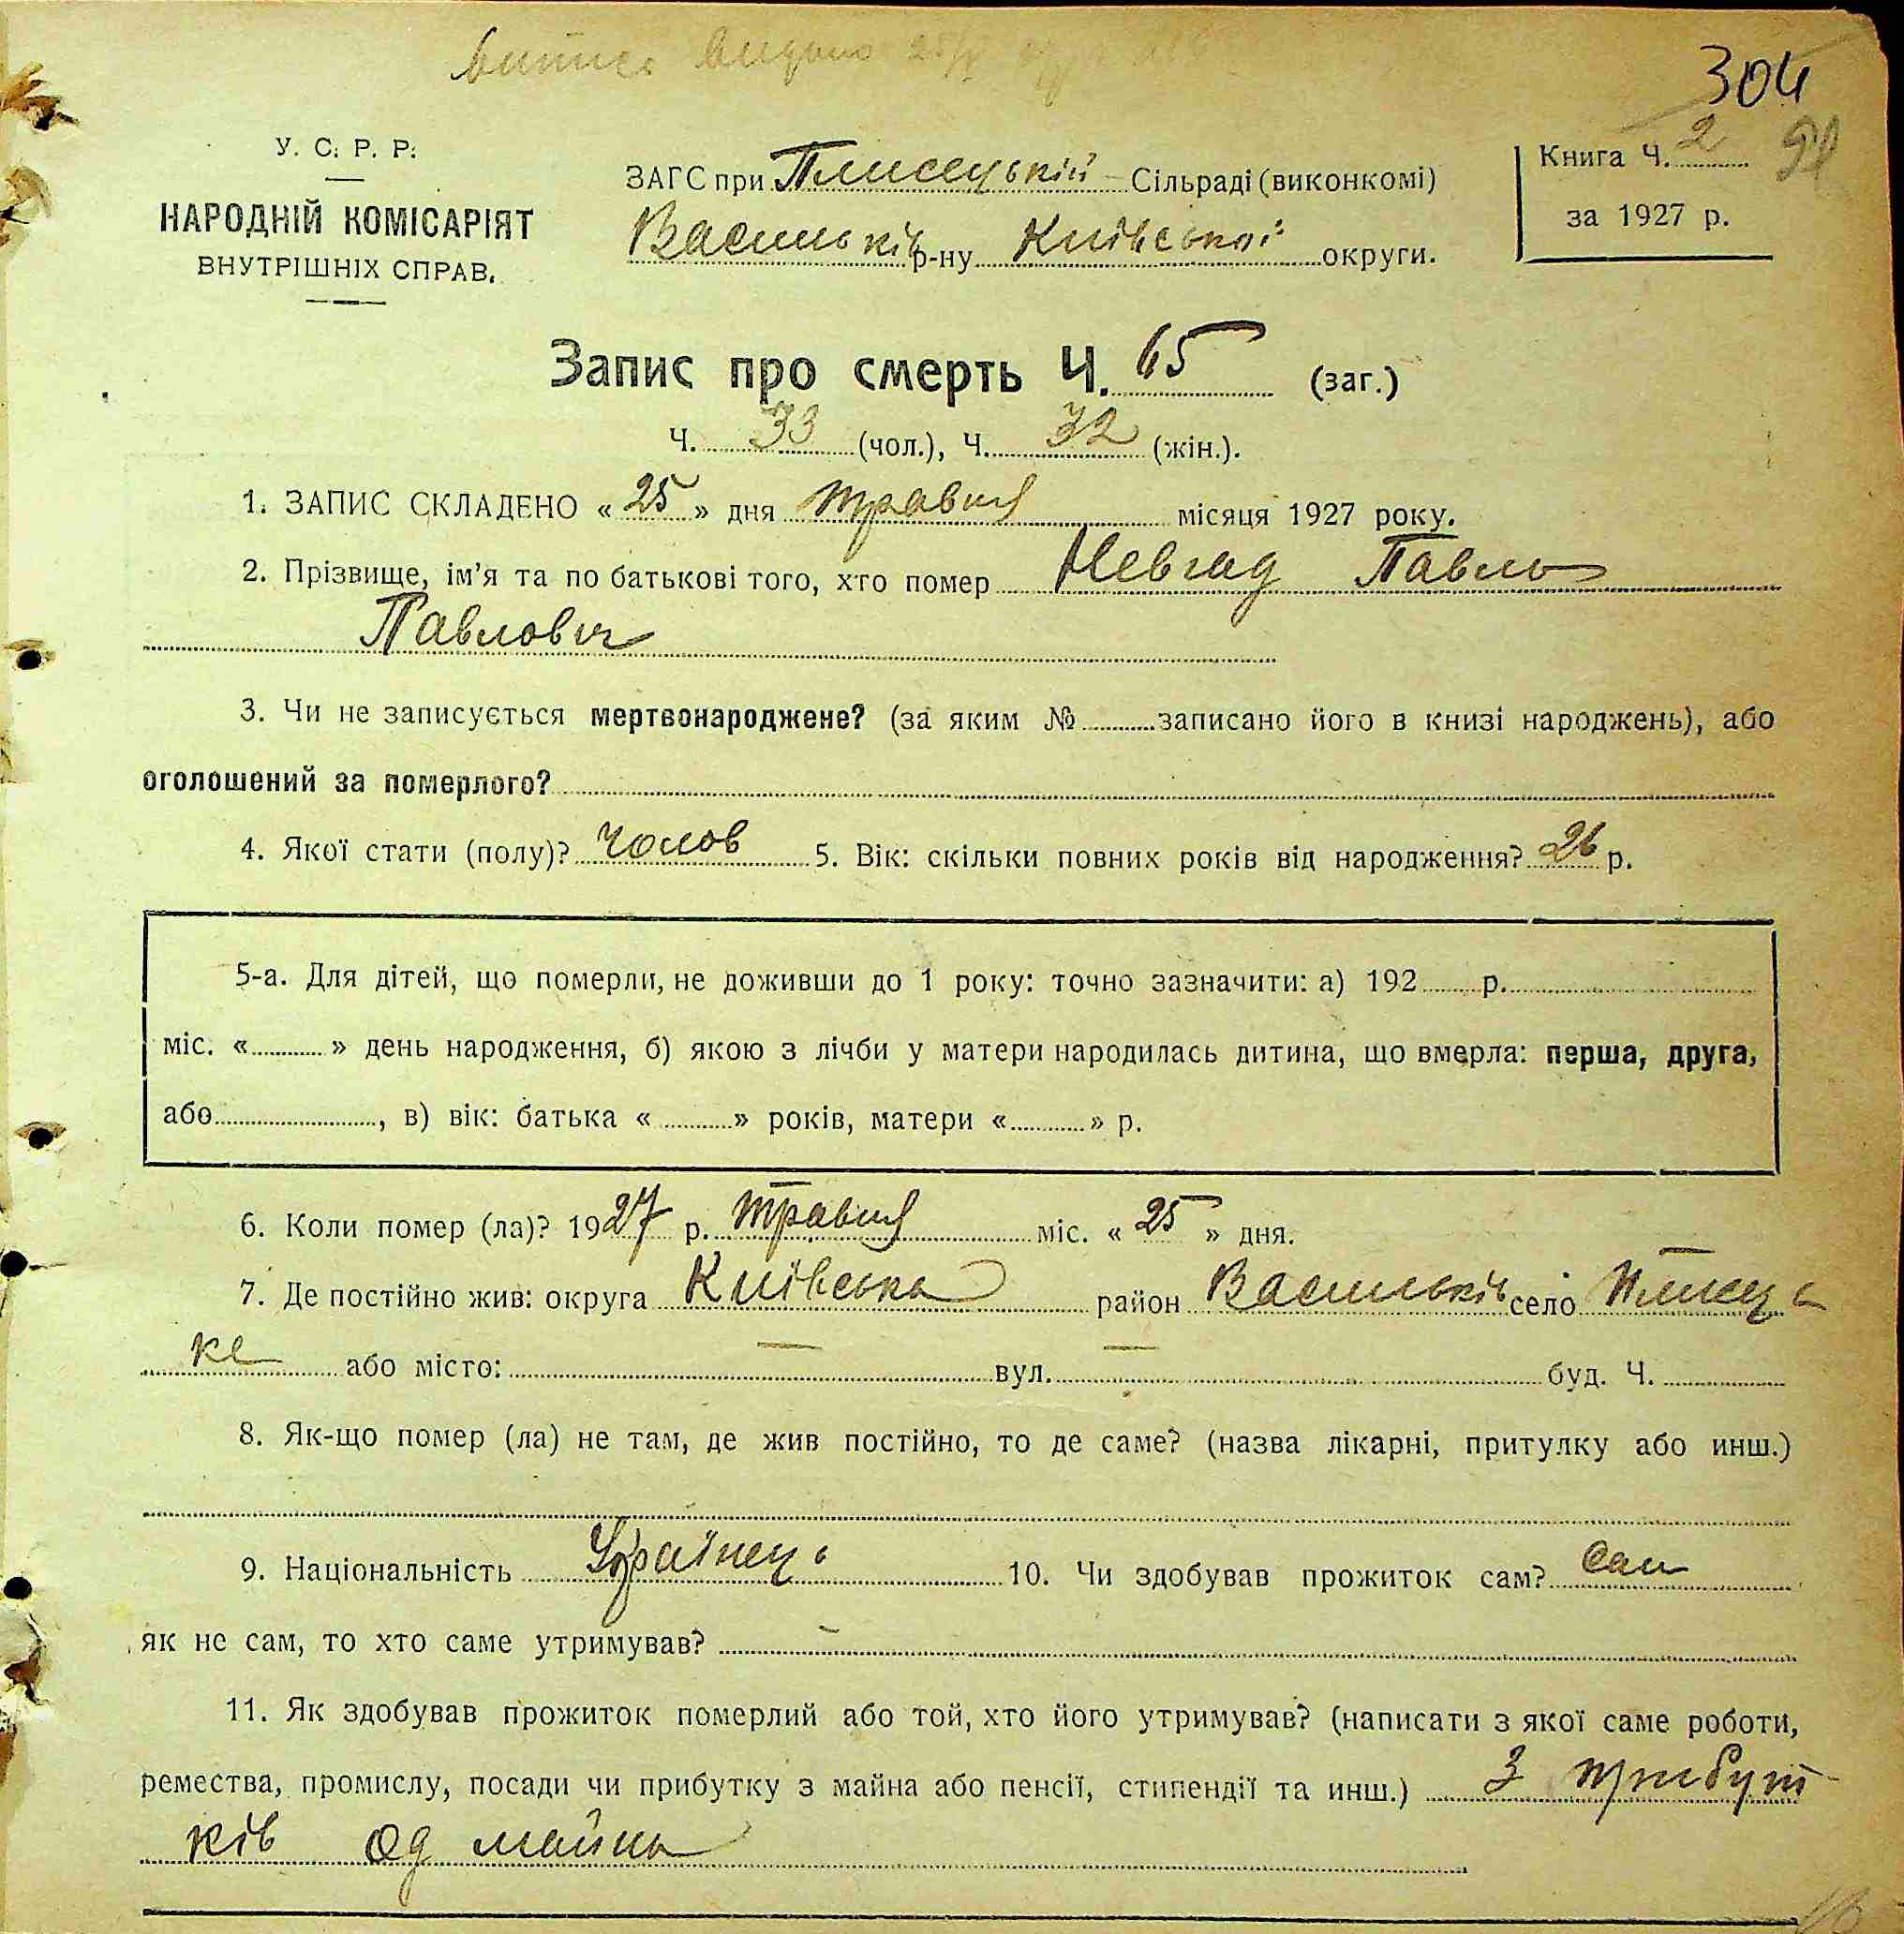 304
У. С. Р. Р.
НАРОДНІЙ КОМІСАРІЯТ
ВНУТРІШНІХ СПРАВ.
ЗАГС при Плисецькій Сільраді (виконкомі)
Васильків р-ну Київської округи.
Книга Ч. 2
за 1927 р.
Запис про смерть Ч. 65 (заг.)
Ч. 33 (чол.), Ч. 32 (жін.).
1. ЗАПИС СКЛАДЕНО « 25 » дня травня місяця 1927 року.
2. Прізвище, ім'я та по батькові того, хто помер Невгад Павло
Павлович
3. Чи не записується мертвонароджене? (за яким № записано його в книзі народжень), або
оголошений за померлого?
4. Якої стати (полу)? Чолов 5. Вік: скільки повних років від народження? 26 р.
5-а. Для дітей, що померли, не доживши до 1 року: точно зазначити: а) 192 р.
міс. « » день народження, б) якою з лічби у матери народилась дитина, що вмерла: перша, друга,
або , в) вік: батька « » років, матери « » р.
6. Коли помер (ла)? 1927 р. травня міс. « 25 » дня.
7. Де постійно жив: округа Київська район Васильків село Плисець
ке або місто: — вул. — буд. Ч.
8. Як-що помер (ла) не там, де жив постійно, то де саме? (назва лікарні, притулку або инш.)
9. Національність Українець 10. Чи здобував прожиток сам? Сам
як не сам, то хто саме утримував? —
11. Як здобував прожиток померлий або той, хто його утримував? (написати з якої саме роботи,
ремества, промислу, посади чи прибутку з майна або пенсії, стипендії та инш.) З прибут-
ків од майна